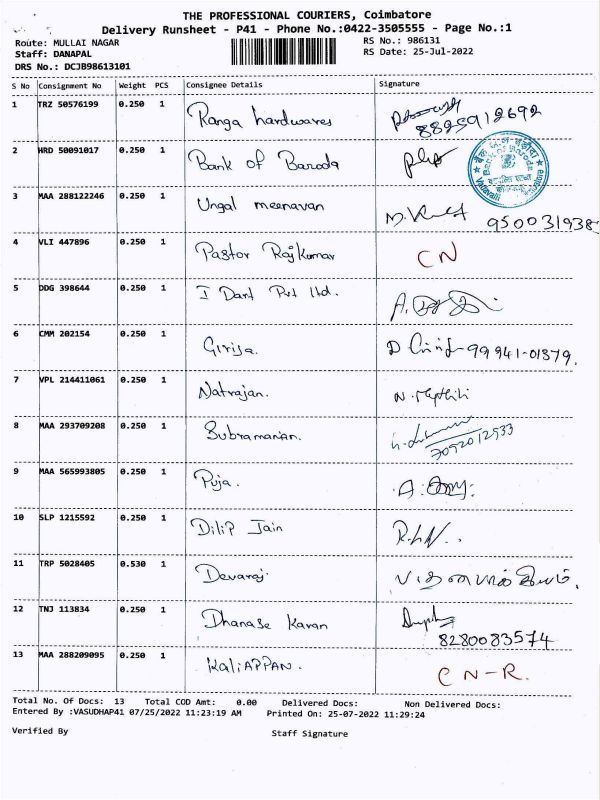 THE PROFESSIONAL COURIERS, Coimbatore
Delivery Runsheet - P41 - Phone No.:0422-3505555 - Page No.:1
Route: MULLAI NAGAR RS No.: 986131
Staff: DANAPAL RS Date: 25-Jul-2022
DRS No.: DCJB98613101
S No Consignment No Weight PCS Consignee Details Signature
1 TRZ 50576199 0.250 1 Ranga hardwares
8825912692
2 HRD 50091017 0.250 1 Bank of Baroda
3 MAA 288122246 0.250 1 Ungal meenavan
950031938
4 VLI 447896 0.250 1 Pastor Rajkumar CN
5 DDG 398644 0.250 1 I Dart Pvt ltd.
6 CMM 202154 0.250 1 Girija. 99941-01379.
7 VPL 214411061 0.250 1 Natrajan. N. Mythili
8 MAA 293709208 0.250 1 Subramanian.
7092012533
9 MAA 565993805 0.250 1 Puja.
10 SLP 1215592 0.250 1 Dilip Jain
11 TRP 5028405 0.530 1 Devaraj.
12 TNJ 113834 0.250 1 Dhanase Karan
8280083574
13 MAA 288209095 0.250 1 KALIAPPAN. CN-R.
Total No. Of Docs: 13 Total COD Amt: 0.00 Delivered Docs: Non Delivered Docs:
Entered By :VASUDHAP41 07/25/2022 11:23:19 AM Printed On: 25-07-2022 11:29:24
Verified By Staff Signature